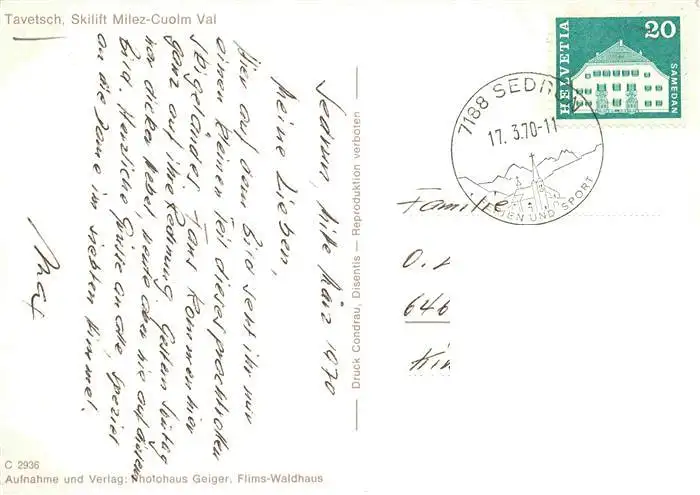 Tavetsch, Skilift Milez-Cuolm Val
Sedrun, Mitte März 1970
Meine Lieben,
Hier auf dem Bild seht ihr nur
einen kleinen Teil dieses prachtvollen
Skigeländes. Fans kommen hier
ganz auf ihre Rechnung. Gestern Sonntag
war dicker Nebel, heute aber wie auf diesem
Bild. Herzliche Grüsse an alle, speziell
an die Dame im siebten Himmel.
C 2936
Aufnahme und Verlag: Photohaus Geiger, Flims-Waldhaus
Druck Condrau, Disentis — Reproduktion verboten
HELVETIA
20
SAMEDAN
7188 SEDRUN
17. 3.70-11
UND SPORT
Familie
646